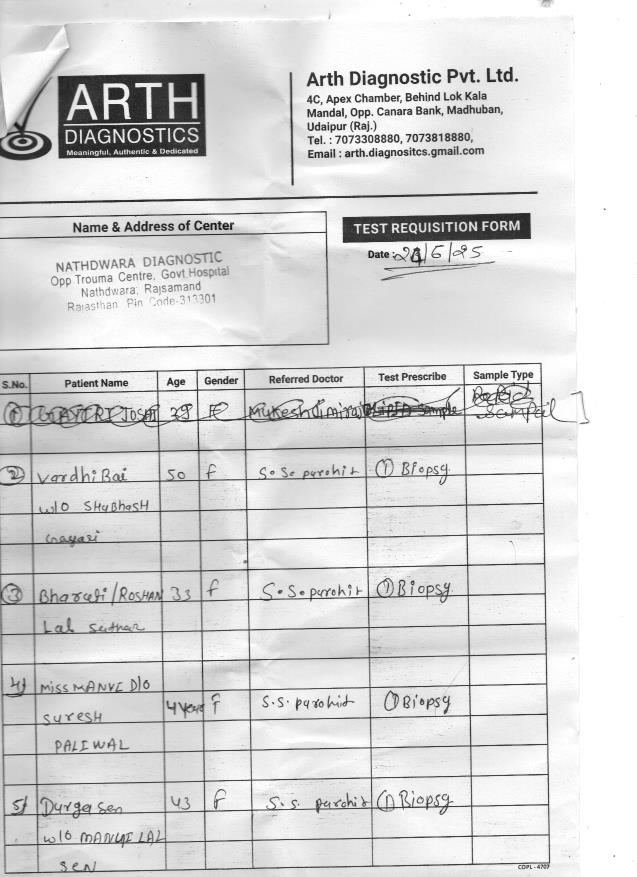 ARTH
DIAGNOSTICS
Meaningful, Authentic & Dedicated
Arth Diagnostic Pvt. Ltd.
4C, Apex Chamber, Behind Lok Kala
Mandal, Opp. Canara Bank, Madhuban,
Udaipur (Raj.)
Tel. : 7073308880, 7073818880,
Email : arth.diagnositcs.gmail.com
Name & Address of Center
NATHDWARA DIAGNOSTIC
Opp Trouma Centre, Govt.Hospital
Nathdwara, Rajsamand
Rajasthan. Pin Code-313301
TEST REQUISITION FORM
Date : /5/25
S.No. Patient Name Age Gender Referred Doctor Test Prescribe Sample Type
1 GAYTRI JOSHI 39 F Mukesh Sample
2 Vardhi Bai 50 f S.S. purohit (1) Biopsy
W/O SHUBHASH
Gayari
3 Bharati/ROSHAN 33 f S.S. purohit (1) Biopsy
Lal Suthar
4) MISS MANVE D/O
SURESH 4 Years f S.S. purohit (1) Biopsy
PALIWAL
5) Durga Sen 43 f S.S. purohit (1) Biopsy
W/O MANGI LAL
SEN
CDPL - 4707